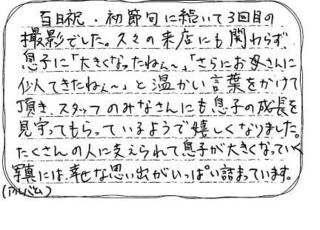 百日祝・初節句に続いて3回目の
撮影でした。久々の来店にも関わらず
息子に「大きくなったねぇ〜」「さらにお母さんに
似てきたねぇ〜」と温かい言葉をかけて
頂き、スタッフのみなさんにも息子の成長を
見守ってもらっているようで嬉しくなりました。
たくさんの人に支えられて息子が大きくなっていく
写真には、幸せな思い出がいっぱい詰まっています。
(アルバム)